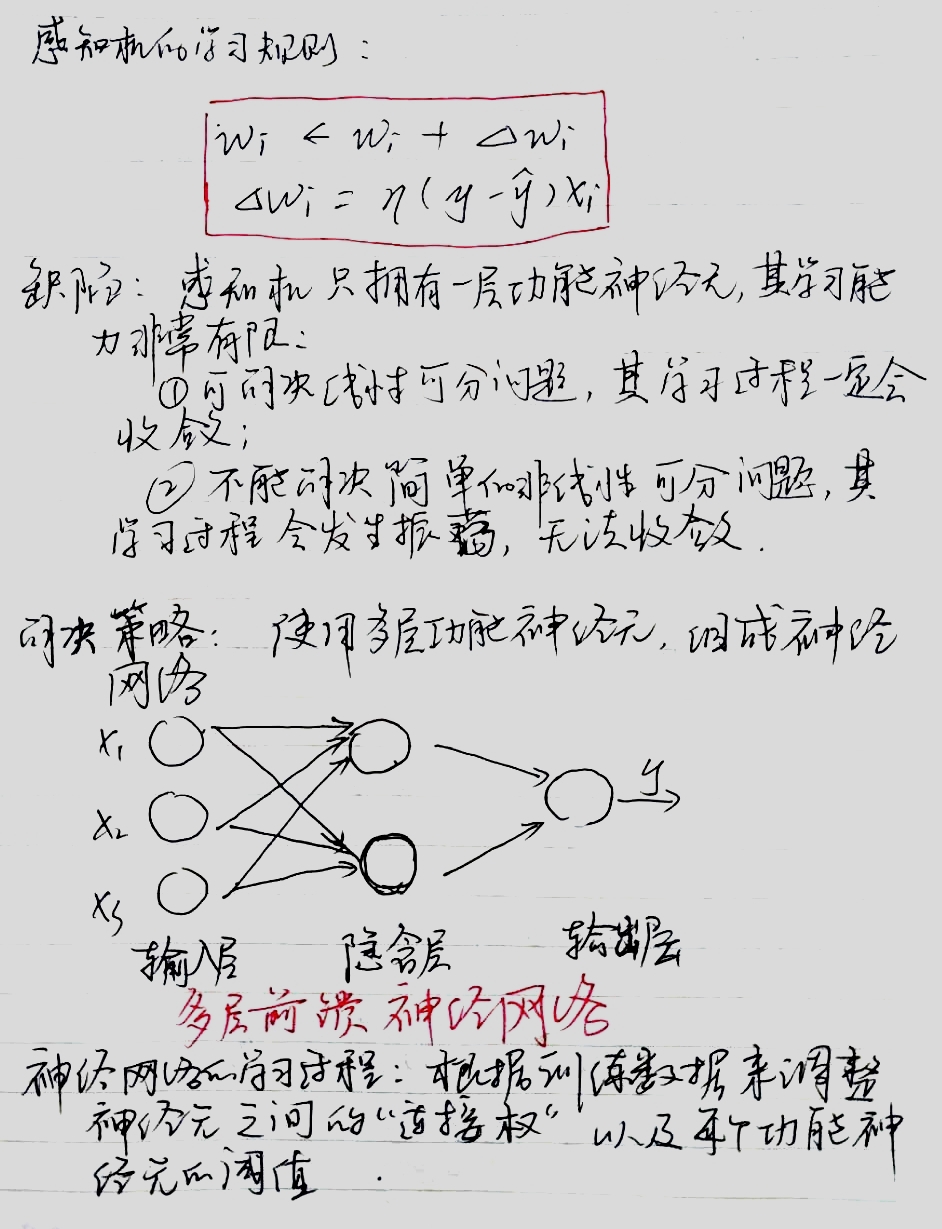 感知机的学习规则：
wᵢ ← wᵢ + Δwᵢ
Δwᵢ = η(y - ŷ)xᵢ
缺陷：感知机只拥有一层功能神经元,其学习能
力非常有限：
①可解决线性可分问题，其学习过程一定会
收敛；
②不能解决简单的非线性可分问题，其
学习过程会发生振荡，无法收敛．
解决策略：使用多层功能神经元，组成神经
网络
x₁
x₂
x₃
y
输入层 隐含层 输出层
多层前馈神经网络
神经网络的学习过程：根据训练数据来调整
神经元之间的“连接权”以及每个功能神
经元的阈值．